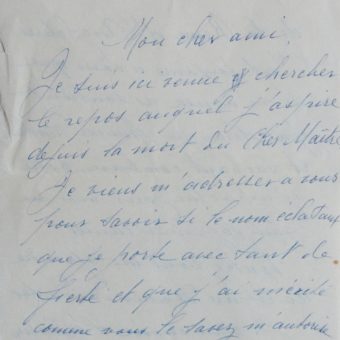 Mon cher ami.
Je suis ici venue y chercher
le repos auquel j'aspire
depuis la mort du Cher Maître
Je viens m'adresser a vous
pour savoir si le nom éclatant
que je porte avec tant de
fierté et que j'ai mérité
comme vous le savez m'autorise